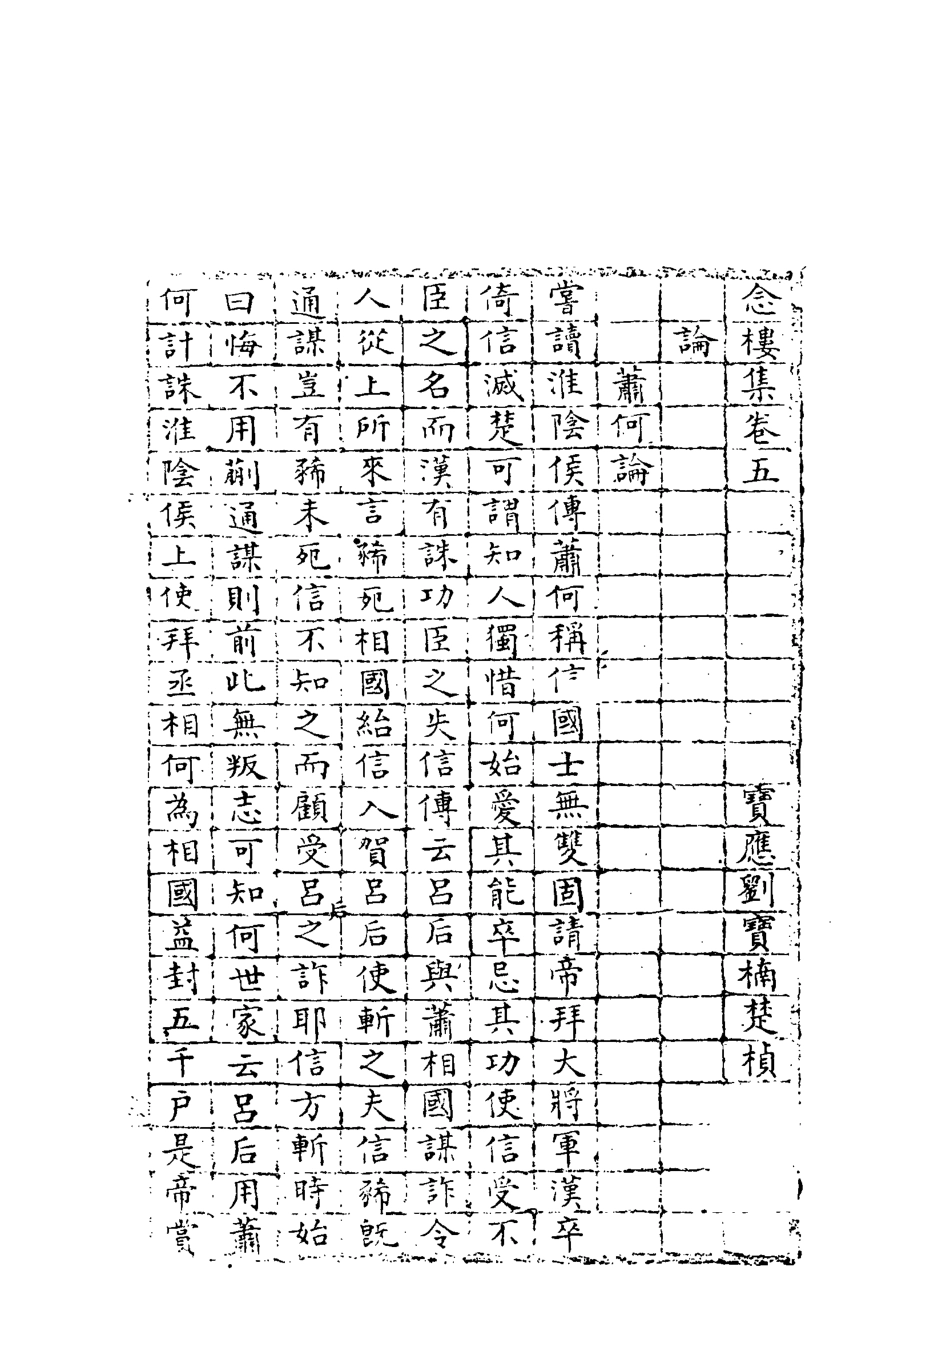 念樓集卷五　寶應劉寶楠楚楨
論
蕭何論
嘗讀淮陰侯傳蕭何稱信國士無雙固請帝拜大將軍漢卒
倚信滅楚可謂知人獨惜何始愛其能卒忌其功使信受不
臣之名而漢有誅功臣之失信傳云呂后與蕭相國謀詐令
人從上所來言豨死相國紿信入賀呂后使斬之夫信豨既
通謀豈有豨未死信不知之而顧受呂后之詐耶信方斬時始
曰悔不用蒯通謀則前此無叛志可知何世家云呂后用蕭
何計誅淮陰侯上使拜丞相何為相國益封五千戶是帝賞